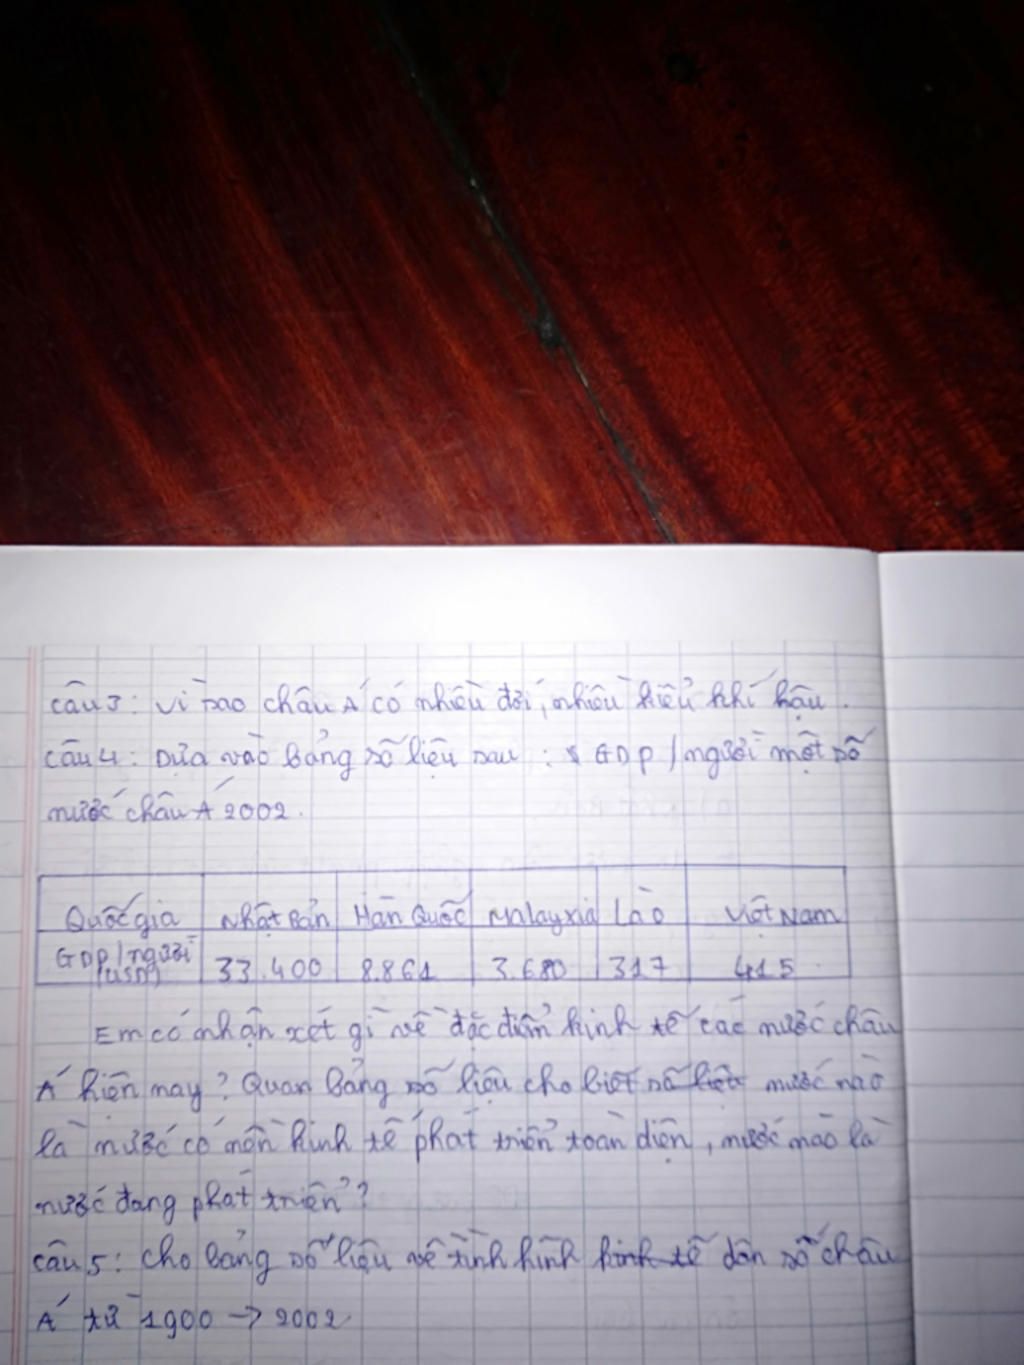 câu 3: vì sao châu Á có nhiều đới, nhiều kiểu khí hậu.
câu 4: Dựa vào bảng số liệu sau: GDP/người một số
nước châu Á 2002.
Quốc gia Nhật Bản Hàn Quốc Malayxia Lào Việt Nam
GDP/người (USD) 33.400 8.861 3.680 317 415
Em có nhận xét gì về đặc điểm kinh tế các nước châu
Á hiện nay? Quan bảng số liệu cho biết số liệu nước nào
là nước có nền kinh tế phát triển toàn diện, nước nào là
nước đang phát triển?
câu 5: cho bảng số liệu về tình hình kinh tế dân số châu
Á từ 1900 → 2002